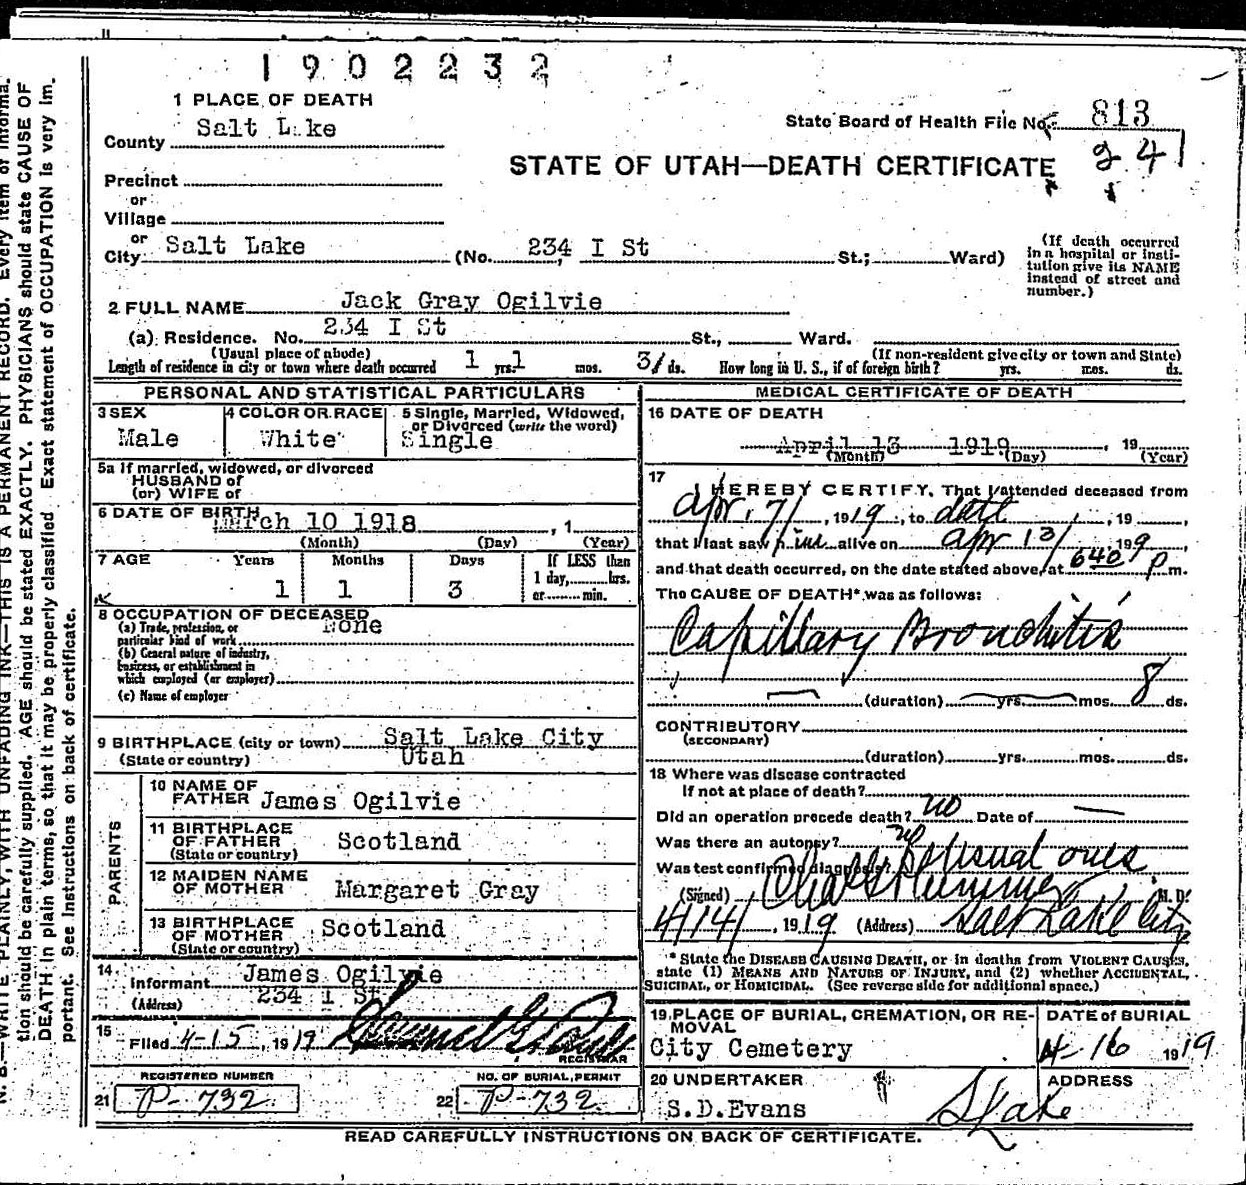 1902232
1 PLACE OF DEATH
County Salt Lake
State Board of Health File No. 813
241
STATE OF UTAH—DEATH CERTIFICATE
Precinct
or
Village
or
City Salt Lake (No. 234 I St St.; Ward)
(If death occurred in a hospital or insti-
tution give its NAME
instead of street and
number.)
2 FULL NAME Jack Gray Ogilvie
(a) Residence. No. 234 I St St., Ward.
(Usual place of abode) (If non-resident give city or town and State)
Length of residence in city or town where death occurred 1 yrs. 1 mos. 3 ds. How long in U. S., if of foreign birth? yrs. mos. ds.
PERSONAL AND STATISTICAL PARTICULARS
3 SEX
Male
4 COLOR OR RACE
White
5 Single, Married, Widowed,
or Divorced (write the word)
Single
5a If married, widowed, or divorced
HUSBAND of
(or) WIFE of
6 DATE OF BIRTH
March 10 1918 , 1
(Month) (Day) (Year)
7 AGE Years Months Days If LESS than
1 day, hrs.
1 1 3 or min.
8 OCCUPATION OF DECEASED
(a) Trade, profession, or None
particular kind of work
(b) General nature of industry,
business, or establishment in
which employed (or employer)
(c) Name of employer
9 BIRTHPLACE (city or town) Salt Lake City
(State or country) Utah
PARENTS
10 NAME OF
FATHER James Ogilvie
11 BIRTHPLACE
OF FATHER Scotland
(State or country)
12 MAIDEN NAME
OF MOTHER Margaret Gray
13 BIRTHPLACE
OF MOTHER Scotland
(State or country)
14 Informant James Ogilvie
(Address) 234 I St
15 Filed 4-15, 1919
REGISTRAR
REGISTERED NUMBER
21 P-732
NO. OF BURIAL PERMIT
22 P-732
MEDICAL CERTIFICATE OF DEATH
16 DATE OF DEATH
April 13 1919 , 19
(Month) (Day) (Year)
17 I HEREBY CERTIFY, That I attended deceased from
Apr. 7/, 1919, to date, 19 ,
that I last saw him alive on Apr 13/ 199,
and that death occurred, on the date stated above, at 640 P m.
The CAUSE OF DEATH* was as follows:
Capillary Bronchitis
(duration) yrs. mos. 8 ds.
CONTRIBUTORY
(SECONDARY)
(duration) yrs. mos. ds.
18 Where was disease contracted
If not at place of death?
Did an operation precede death? no Date of —
Was there an autopsy? no
What test confirmed diagnosis? usual ones
(Signed) M. D.
4/14/, 1919 (Address) Salt Lake City
* State the DISEASE CAUSING DEATH, or in deaths from VIOLENT CAUSES,
state (1) MEANS AND NATURE OF INJURY, and (2) whether ACCIDENTAL,
SUICIDAL, or HOMICIDAL. (See reverse side for additional space.)
19 PLACE OF BURIAL, CREMATION, OR RE-
MOVAL
City Cemetery
DATE of BURIAL
4-16 1919
20 UNDERTAKER
S.D.Evans
ADDRESS
S Lake
READ CAREFULLY INSTRUCTIONS ON BACK OF CERTIFICATE.
N. B.—WRITE PLAINLY, WITH UNFADING INK—THIS IS A PERMANENT RECORD. Every item of informa-
tion should be carefully supplied. AGE should be stated EXACTLY. PHYSICIANS should state CAUSE OF
DEATH in plain terms, so that it may be properly classified. Exact statement of OCCUPATION is very im-
portant. See Instructions on back of certificate.